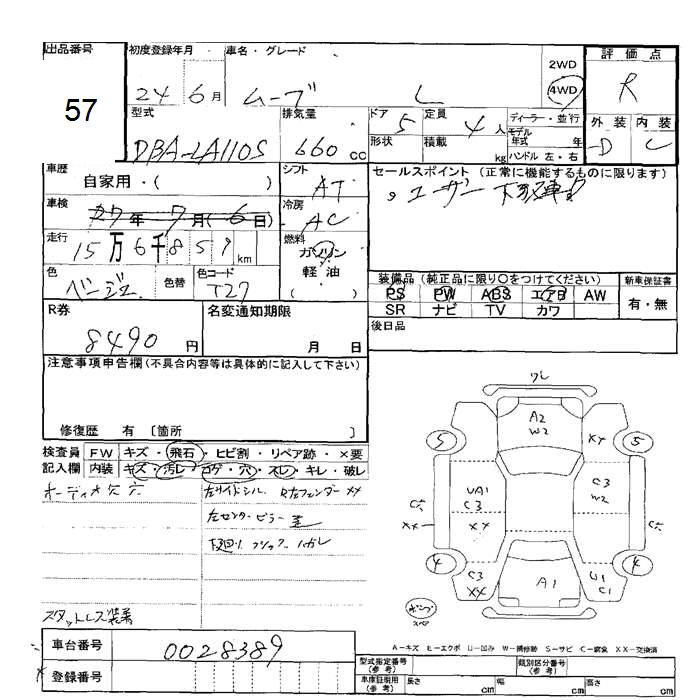 出品番号 初度登録年月 車名・グレード 評価点
57
24 6月 ムーブ L 2WD 4WD R
型式 排気量 ドア 定員 ディーラー・並行 外装 内装
DBA-LA110S 660cc 5 4人 モデル年式 年 D C
形状 積載 kg ハンドル 左・右
車歴 シフト セールスポイント(正常に機能するものに限ります)
自家用・( ) AT
車検 冷房
27年7月(6日) AC
走行 燃料
15万6千859km ガソリン
軽・油
( )
色 色替 色コード 装備品(純正品に限り○をつけてください) 新車保証書
ベージュ T27 PS PW ABS エアB AW 有・無
SR ナビ TV カワ
R券 名変通知期限 後日品
8490円 月 日
注意事項申告欄(不具合内容等は具体的に記入して下さい)
修復歴 有 〔箇所 〕
検査員 FW キズ・飛石・ヒビ割・リペア跡・×要
記入欄 内装 キズ・汚レ・コゲ・穴・スレ・キレ・破レ
左サイドシル
左センターピラー
スタットレス装着
ワレ
A2
W2
5 XX 5
UA1
C3
XX
C3
W2
XX
4 4
C3
XX
A1
U1
C1
A-キズ E-エクボ U-凹み W-補修跡 S-サビ C-腐食 XX-交換済
車台番号 0028389
登録番号
型式指定番号(参考) 類別区分番号(参考)
車庫証明用(参考) 長さ cm 幅 cm 高さ cm